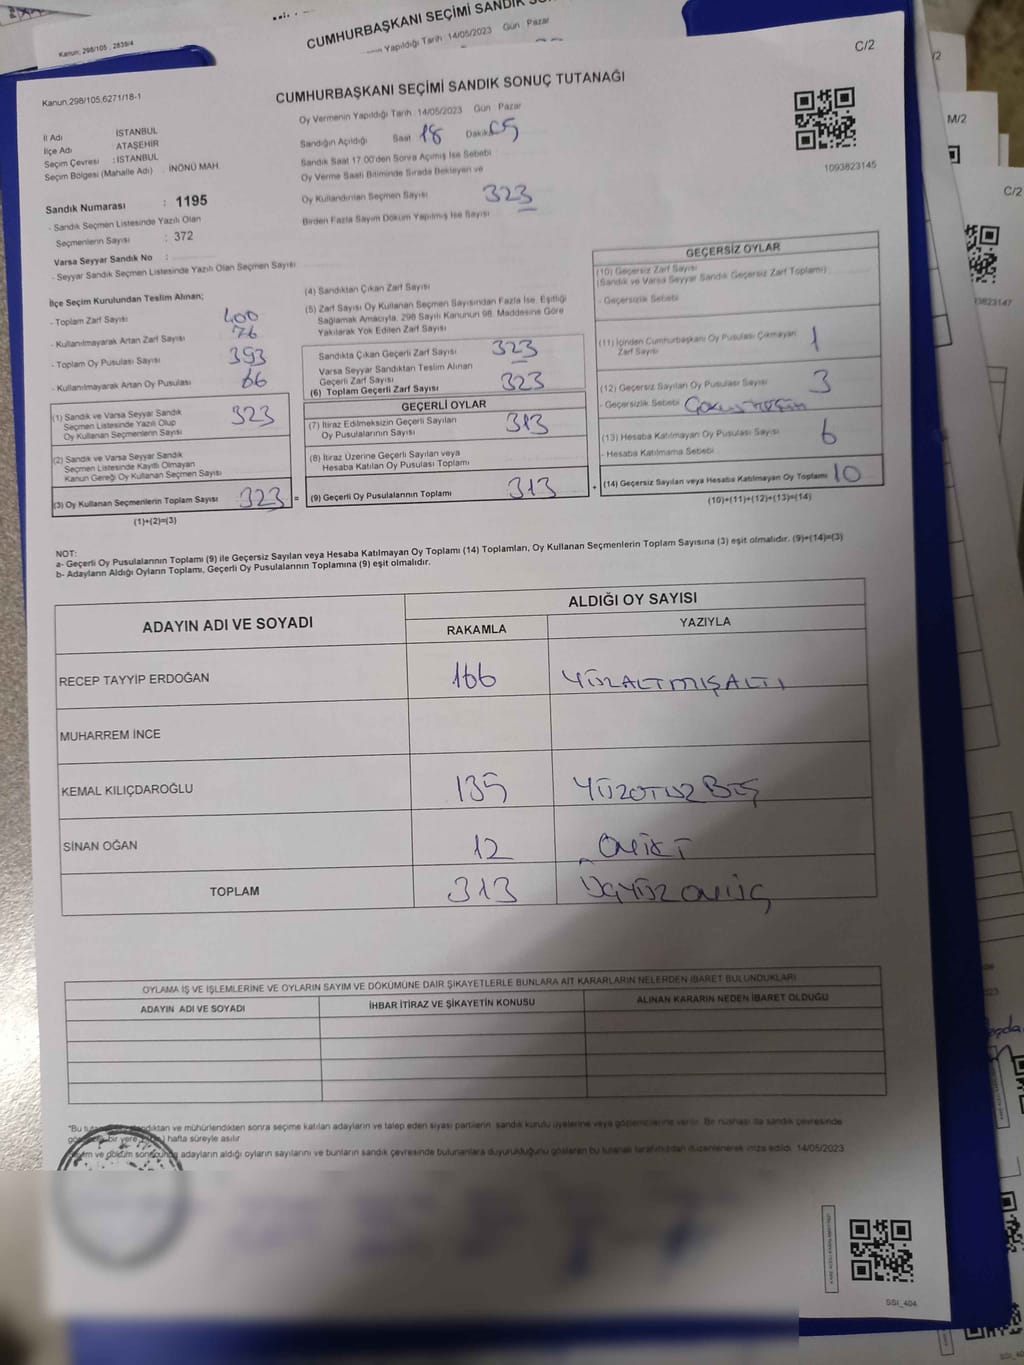 CUMHURBAŞKANI SEÇİMİ SANDIK
Kanun: 298/105 , 2839/4
Yapıldığı Tarih : 14/05/2023 Gün : Pazar
C/2
Kanun:298/105,6271/18-1
CUMHURBAŞKANI SEÇİMİ SANDIK SONUÇ TUTANAĞI
Oy Vermenin Yapıldığı Tarih : 14/05/2023 Gün : Pazar
İl Adı : İSTANBUL
İlçe Adı : ATAŞEHİR
Seçim Çevresi : İSTANBUL
Seçim Bölgesi (Mahalle Adı) : İNÖNÜ MAH.
Sandığın Açıldığı Saat 18 Dakika 05
Sandık Saat 17.00'den Sonra Açılmış İse Sebebi
Oy Verme Saati Bitiminde Sırada Bekleyen ve
Oy Kullandırılan Seçmen Sayısı 323
Birden Fazla Sayım Döküm Yapılmış İse Sayısı
1093823145
Sandık Numarası : 1195
- Sandık Seçmen Listesinde Yazılı Olan
Seçmenlerin Sayısı : 372
Varsa Seyyar Sandık No :
- Seyyar Sandık Seçmen Listesinde Yazılı Olan Seçmen Sayısı
İlçe Seçim Kurulundan Teslim Alınan;
- Toplam Zarf Sayısı 400
- Kullanılmayarak Artan Zarf Sayısı 76
- Toplam Oy Pusulası Sayısı 393
- Kullanılmayarak Artan Oy Pusulası 66
(1) Sandık ve Varsa Seyyar Sandık
Seçmen Listesinde Yazılı Olup
Oy Kullanan Seçmenlerin Sayısı 323
(2) Sandık ve Varsa Seyyar Sandık
Seçmen Listesinde Kayıtlı Olmayan
Kanun Gereği Oy Kullanan Seçmen Sayısı
(3) Oy Kullanan Seçmenlerin Toplam Sayısı 323 =
(1)+(2)=(3)
(4) Sandıktan Çıkan Zarf Sayısı
(5) Zarf Sayısı Oy Kullanan Seçmen Sayısından Fazla İse, Eşitliği
Sağlamak Amacıyla, 298 Sayılı Kanunun 98. Maddesine Göre
Yakılarak Yok Edilen Zarf Sayısı
Sandıkta Çıkan Geçerli Zarf Sayısı 323
Varsa Seyyar Sandıktan Teslim Alınan
Geçerli Zarf Sayısı
(6) Toplam Geçerli Zarf Sayısı 323
GEÇERLİ OYLAR
(7) İtiraz Edilmeksizin Geçerli Sayılan
Oy Pusulalarının Sayısı 313
(8) İtiraz Üzerine Geçerli Sayılan veya
Hesaba Katılan Oy Pusulası Toplamı
(9) Geçerli Oy Pusulalarının Toplamı 313 +
GEÇERSİZ OYLAR
(10) Geçersiz Zarf Sayısı
(Sandık ve Varsa Seyyar Sandık Geçersiz Zarf Toplamı)
- Geçersizlik Sebebi
(11) İçinden Cumhurbaşkanı Oy Pusulası Çıkmayan
Zarf Sayısı 1
(12) Geçersiz Sayılan Oy Pusulası Sayısı 3
- Geçersizlik Sebebi
(13) Hesaba Katılmayan Oy Pusulası Sayısı 6
- Hesaba Katılmama Sebebi
(14) Geçersiz Sayılan veya Hesaba Katılmayan Oy Toplamı 10
(10)+(11)+(12)+(13)=(14)
NOT:
a- Geçerli Oy Pusulalarının Toplamı (9) ile Geçersiz Sayılan veya Hesaba Katılmayan Oy Toplamı (14) Toplamları, Oy Kullanan Seçmenlerin Toplam Sayısına (3) eşit olmalıdır. (9)+(14)=(3)
b- Adayların Aldığı Oyların Toplamı, Geçerli Oy Pusulalarının Toplamına (9) eşit olmalıdır.
ADAYIN ADI VE SOYADI
ALDIĞI OY SAYISI
RAKAMLA YAZIYLA
RECEP TAYYİP ERDOĞAN 166 YÜZALTMIŞALTI
MUHARREM İNCE
KEMAL KILIÇDAROĞLU 135 YÜZOTUZ BEŞ
SİNAN OĞAN 12 ONİKİ
TOPLAM 313 ÜÇYÜZONÜÇ
OYLAMA İŞ VE İŞLEMLERİNE VE OYLARIN SAYIM VE DÖKÜMÜNE DAİR ŞİKAYETLERLE BUNLARA AİT KARARLARIN NELERDEN İBARET BULUNDUKLARI
ADAYIN ADI VE SOYADI İHBAR İTİRAZ VE ŞİKAYETİN KONUSU ALINAN KARARIN NEDEN İBARET OLDUĞU
"Bu ve mühürlendikten sonra seçime katılan adayların ve talep eden siyasi partilerin sandık kurulu üyelerine veya gözlemcilerine verilir. Bir nüshası da sandık çevresinde
bir yere hafta süreyle asılır
Sayım ve döküm sonucunda adayların aldığı oyların sayılarını ve bunların sandık çevresinde bulunanlara duyurulduğunu gösteren bu tutanak tarafımızdan düzenlenerek imza edildi. 14/05/2023
SSI_404
M/2
C/2